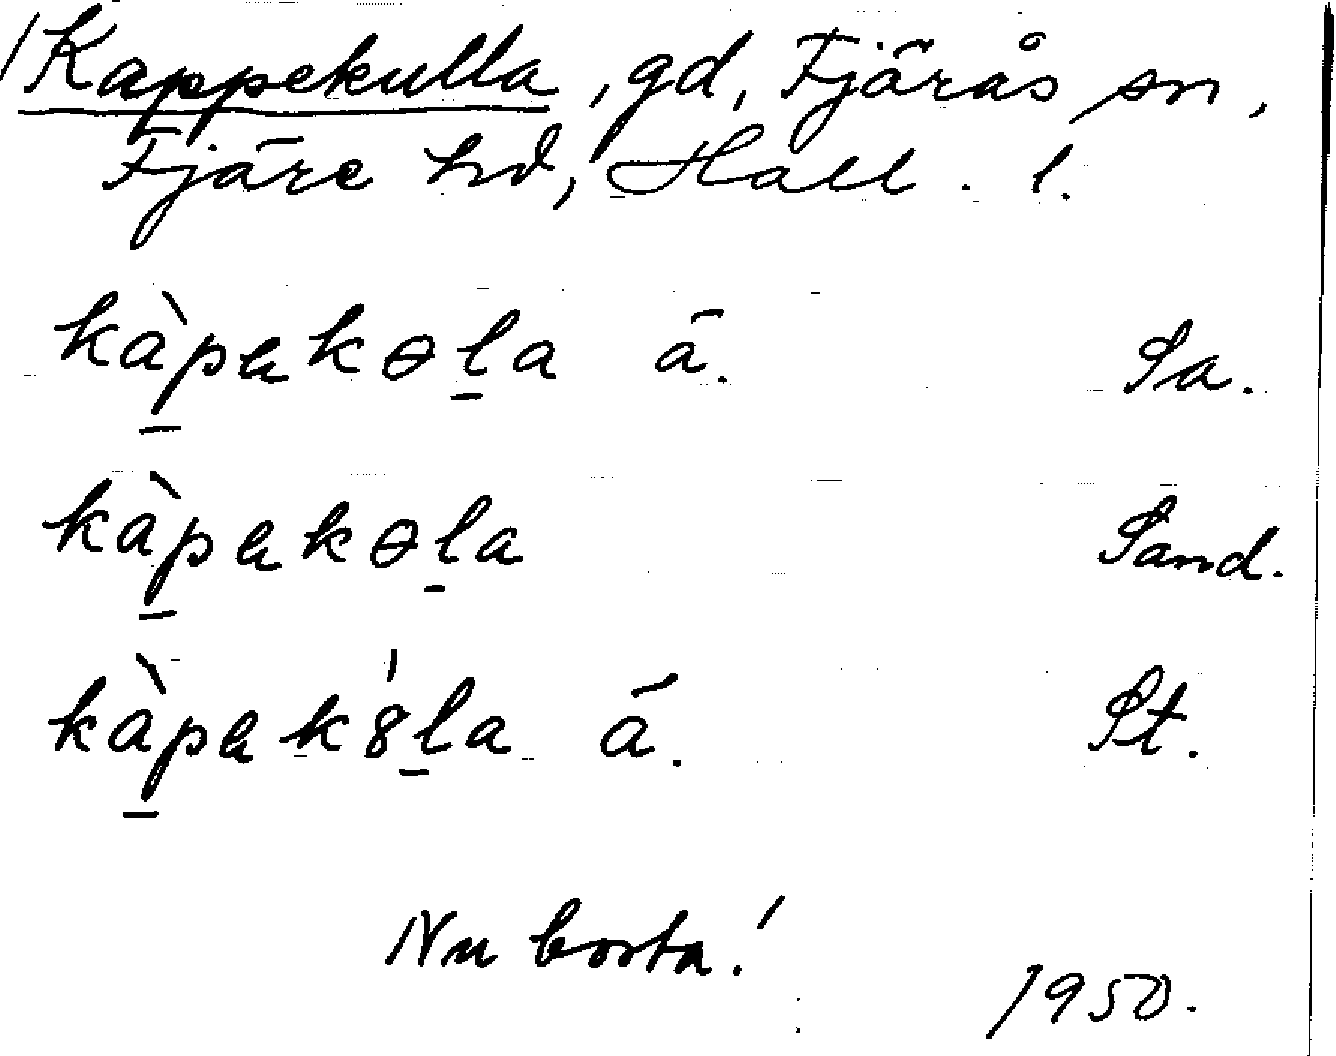 Kappekulla, gd, Fjärås sn,
Fjäre hd, Hall. l.
kàp̱ekɵḻa ā. Sa.
kàp̱ekɵḻa Sand.
kàp̱ek8̍ḻa ā. St.
Nu borta!
1950.